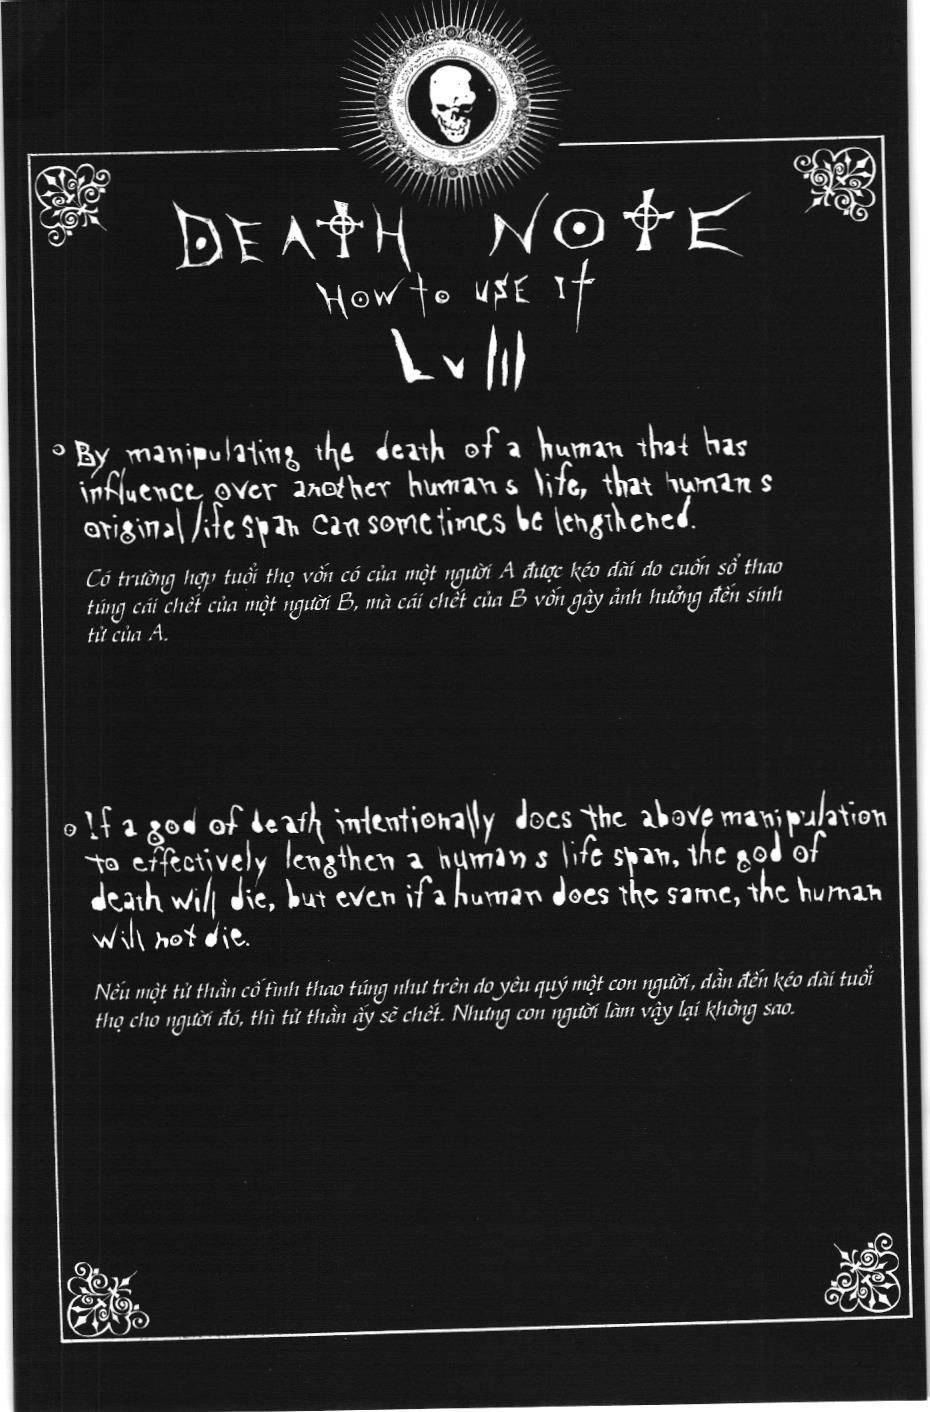 DEATH NOTE
HOW to USE It
LVIII
By manipulating the death of a human that has
influence over another human s life, that human s
original life span can sometimes be lengthened.
Có trường hợp tuổi thọ vốn có của một người A được kéo dài do cuốn sổ thao
túng cái chết của một người B, mà cái chết của B vốn gây ảnh hưởng đến sinh
tử của A.
If a god of death intentionally does the above manipulation
to effectively lengthen a human s life span, the god of
death will die, but even if a human does the same, the human
will not die.
Nếu một tử thần cố tình thao túng như trên do yêu quý một con người, dẫn đến kéo dài tuổi
thọ cho người đó, thì tử thần ấy sẽ chết. Nhưng con người làm vậy lại không sao.